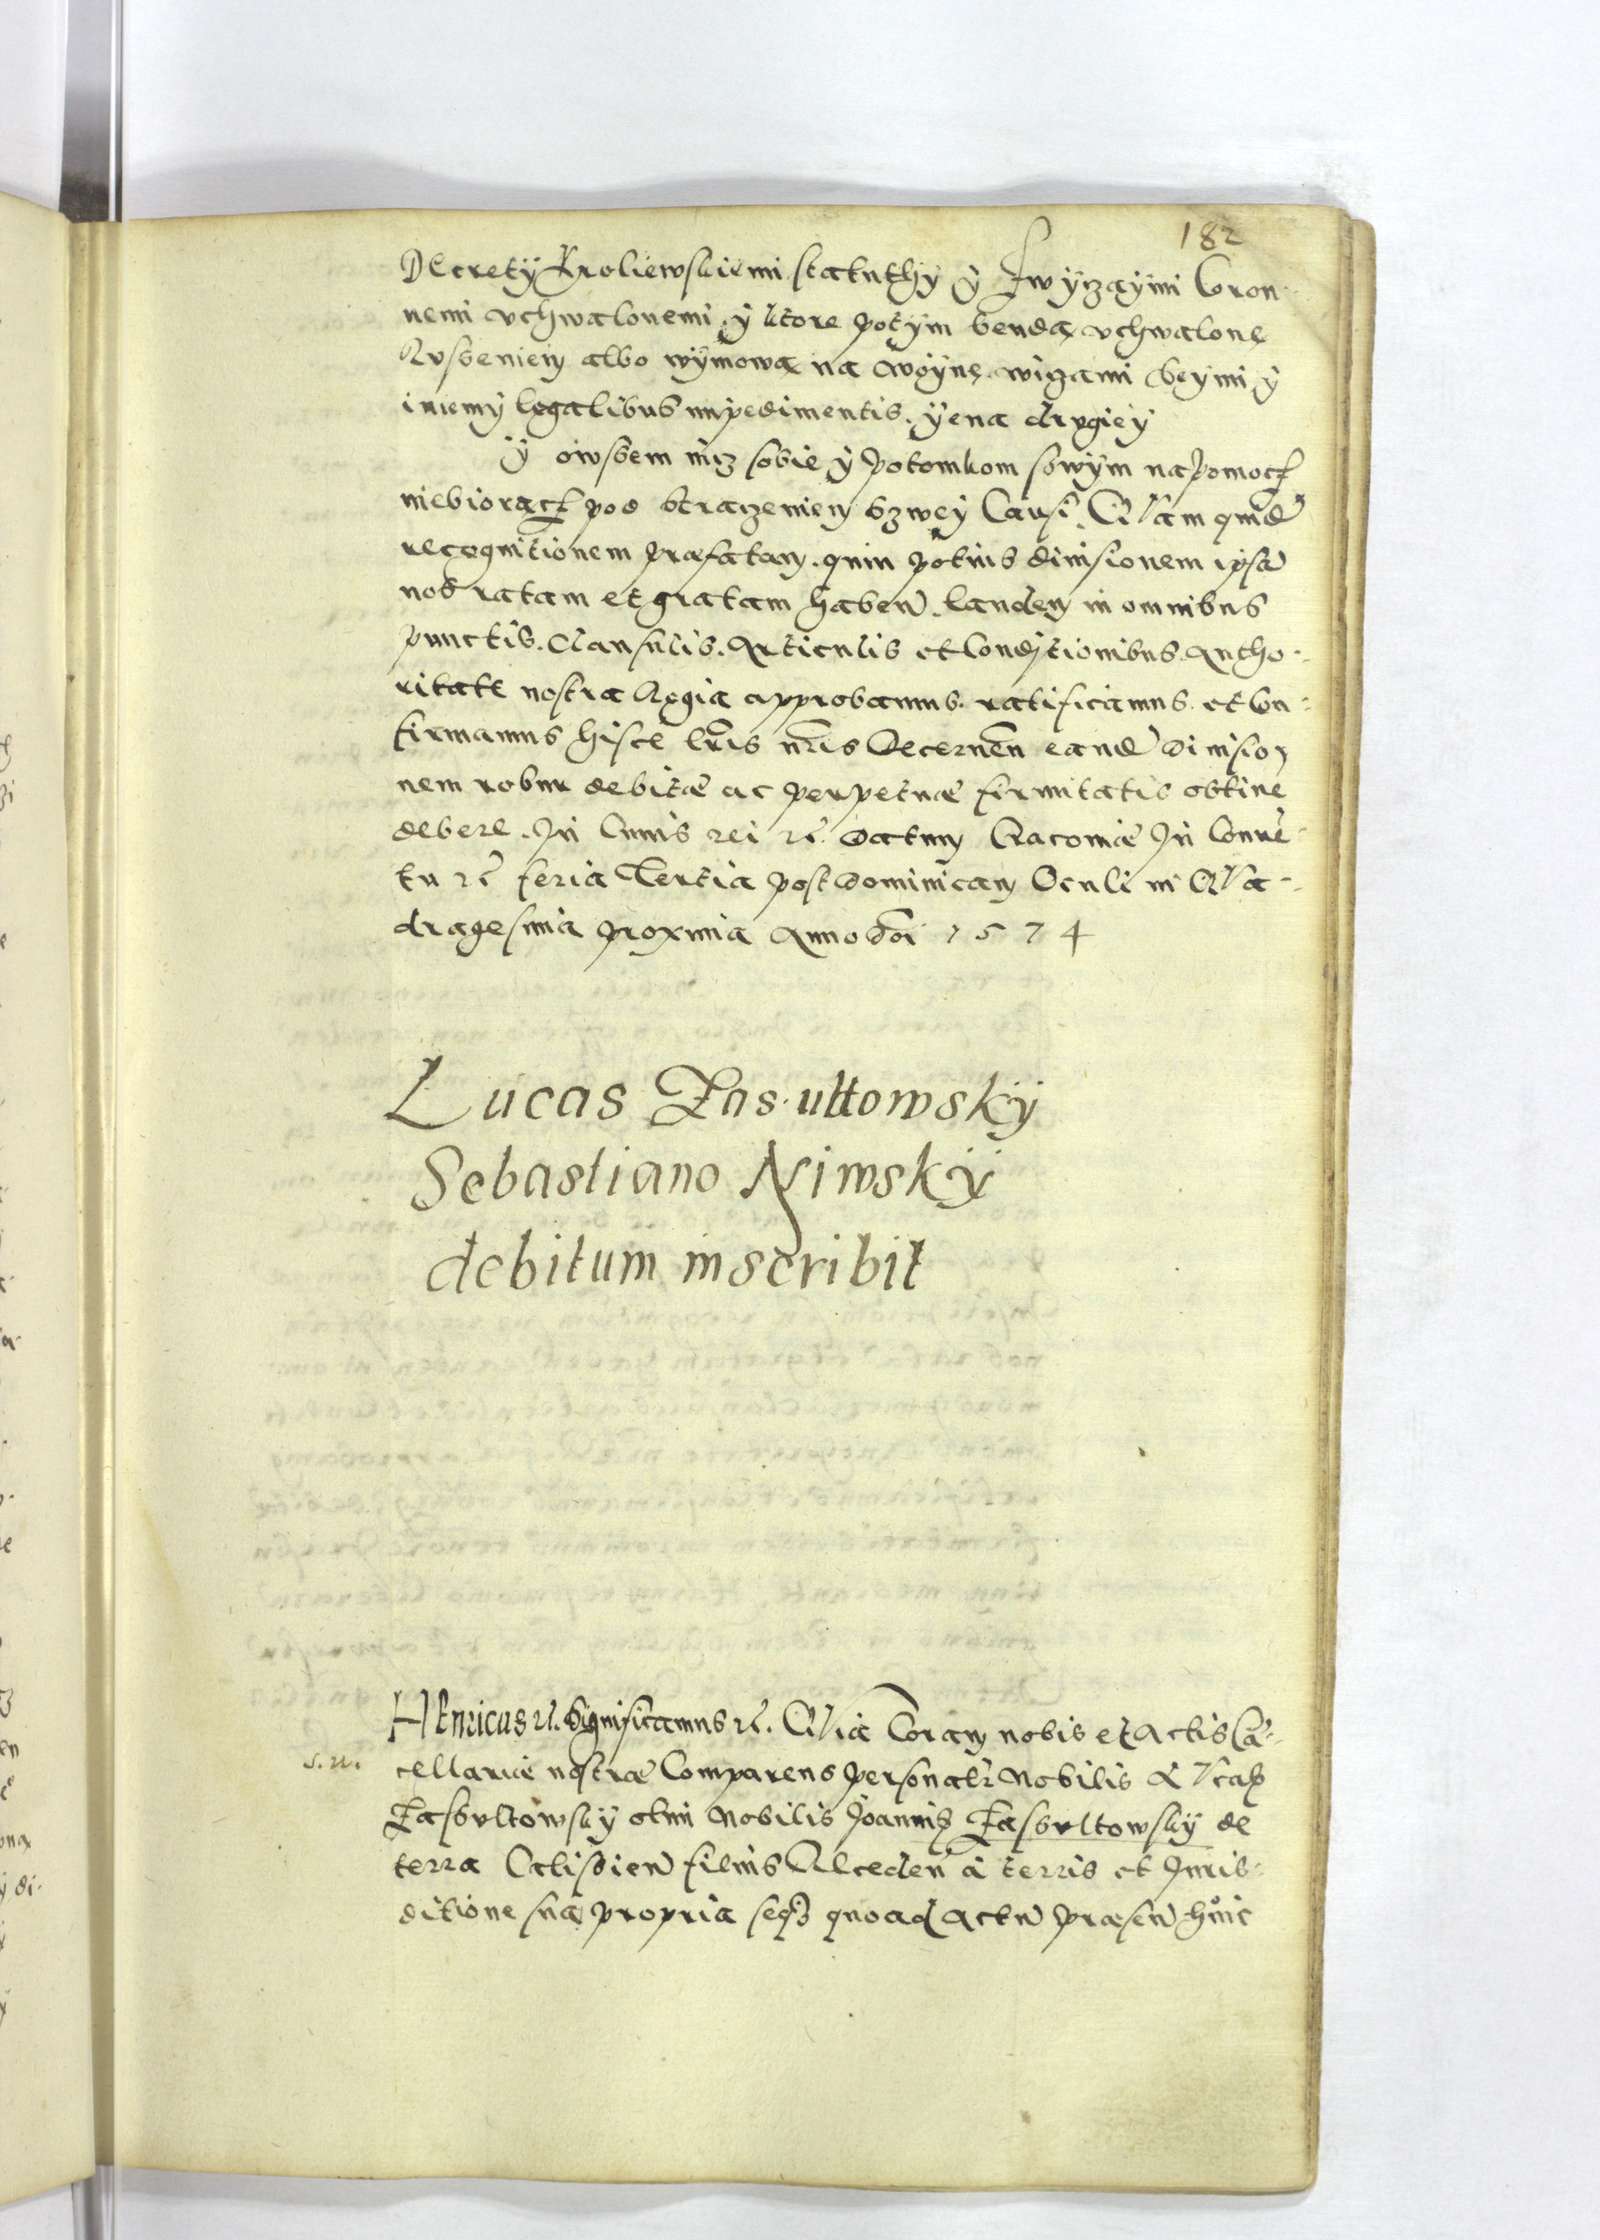 182
DEcretÿ Kroliewskiemi statuthÿ ÿ Zwÿczaÿmi Coron-
nemi vchwalonemi, ÿ ktore potÿm bendą vchwalone
albo wÿmową na woÿnę
iniemÿ legalibus impedimentis. ÿena drugieÿ
ÿ owszem nicz sobie ÿ Potomkom swÿm na Pomocz
niebioracz pod straczeniem Causÿ. QVam quid
recognitionem præfatam. quin potius diuisionem ipsã
nos ratam et gratam haben̄. Eandem in omnibus
punctis. Clausulis. Articulis et Conditionibus. Autho-
ritate nostra Regia approbamus. ratificamus. et Con-
firmamus hisce lr̄is nr̄is Decernen̄ eand diuisio
nem robur debitæ ac perpetuæ firmitatis obtine
debere. In Cuius rei rc̄ Datum Cracouiæ In Conuē-
tu rc̄ feria Tertia post Dominicam Oculi in QVa-
dragesima proxima Anno Dn̄i 1574
Lucas Zas.ultowskÿ
Sebastiano Niwskÿ
debitum inscribit
HEnricus rc̄. Significamus rc̄. QVia Coram nobis et Actis Cā-
s.n. cellariæ nostræ Comparens personalr̄ Nobilis LVcas
Zasvltowskÿ olim Nobilis Joannis Zasvltowskÿ de
terra Calisien̄ filius REceden̄ a terris et Juris-
ditione sua propria seqȝ quoad Actū præsen̄ huic